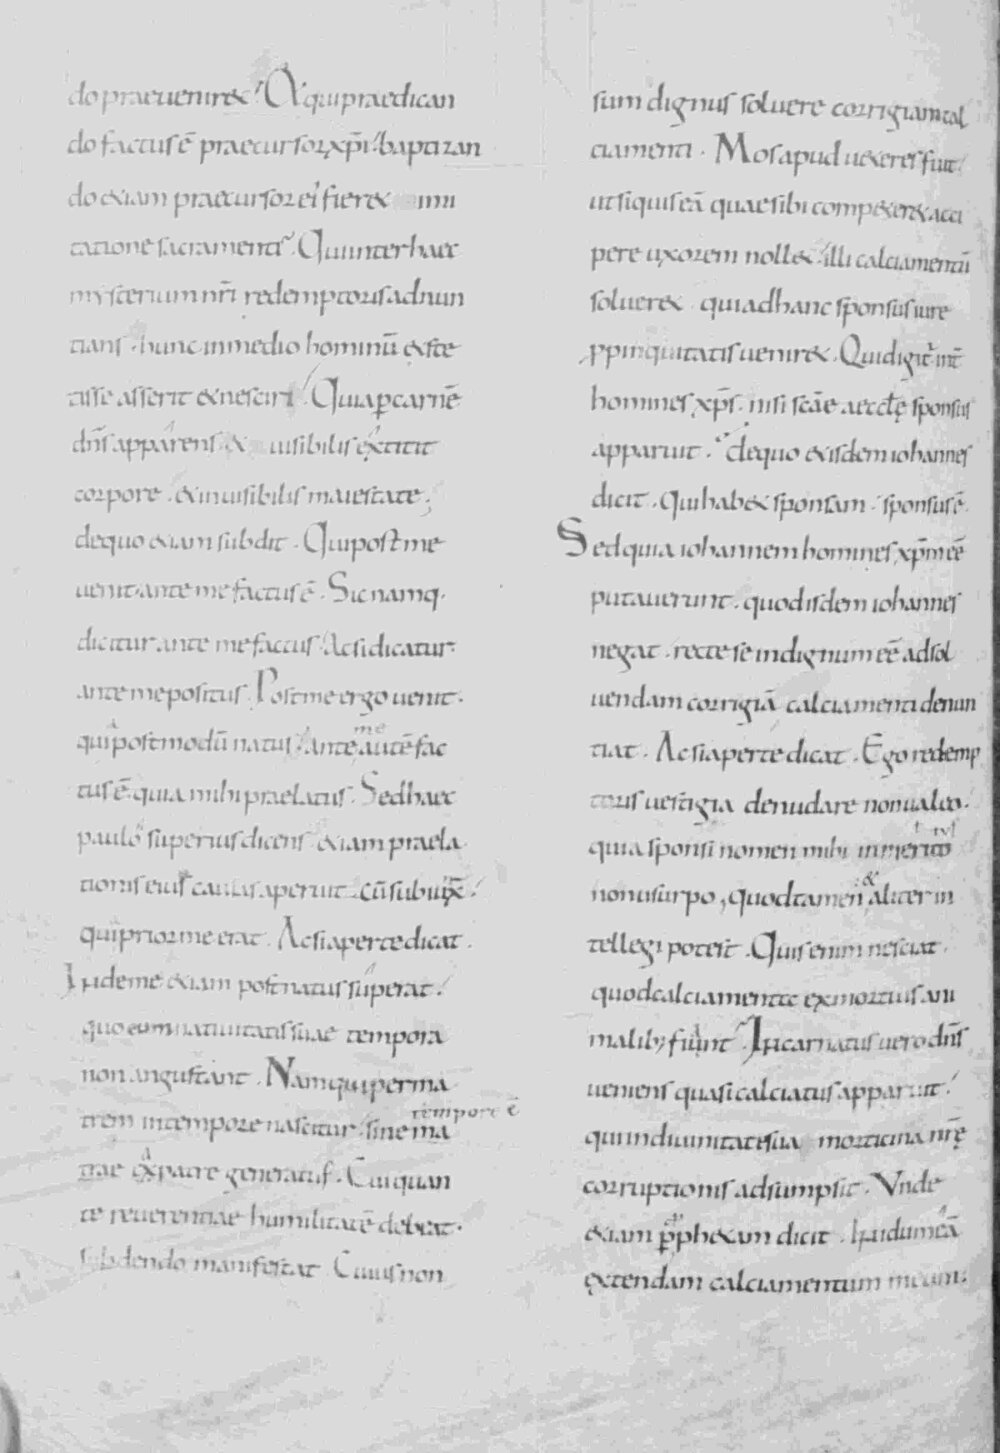 do praeueniret. Et qui praedican
do factus ē praecursor xp̄i. baptizan
do etiam praecursor ei' fieret imi
tatione sacramenti. Qui inter haec
mysterium nr̄i redemptoris adnun
tians. hunc in medio hominū exste
tisse asserit et nesciri. Quia per carnē
dn̄s apparens. et uisibilis extitit
corpore. et inuisibilis maiestate.
de quo etiam subdit. Qui post me
uenit. ante me factus ē. Sic namq.
dicitur. ante me factus. Ac si dicatur.
ante me positus. Post me ergo uenit.
quia postmodū natus. Ante me autē fac
tus ē. quia mihi praelatus. Sed haec
paulo superius dicens. etiam praela
tionis eius causas aperuit. cū subiunx̄.
quia prior me erat. Ac si aperte dicat.
Inde me etiam post natus superat.
quo eum natiuitatis suae tempora
non angustant. Nam qui per ma
trem in tempore nascitur. sine tempore ē
ma
trae a patre generatus. Cui quan
te reuerentiae humilitatē debeat.
subdendo manifestat. Cuius non
sum dignus soluere corrigiam cal
ciamenti. Mos apud ueteres fuit.
ut siquis eā quae sibi competeret acci
pere uxorem nollet. illi calciamentū
solueret qui ad hanc sponsus iure
ppinquitatis ueniret. Quid igit' int̄
homines xp̄s. nisi scāe aeccłę sponsus
apparuit. de quo et isdem iohannes
dicit. Qui habet sponsam. sponsus ē.
Sed quia iohannem homines xp̄m eē
putauerunt. quod isdem iohannes
negat. recte se indignum eē ad sol
uendam corrigiā calciamenti denun
tiat. Ac si aperte dicat. Ego redemp
toris uestigia denudare non ualeo.
quia sponsi nomen mihi inmeritus
non usurpo, quod tamen & aliter in
tellegi potest. Quis enim nesciat.
quod calciamente ex mortuis ani
malib; fiunt. Incarnatus uero dn̄s
ueniens quasi calciatus apparuit.
qui in diuinitate sua morticina nr̄ę
corruptionis adsumpsit. Vnde
etiam p prophetam dicit. In idumeā
extendam calciamentum meum.